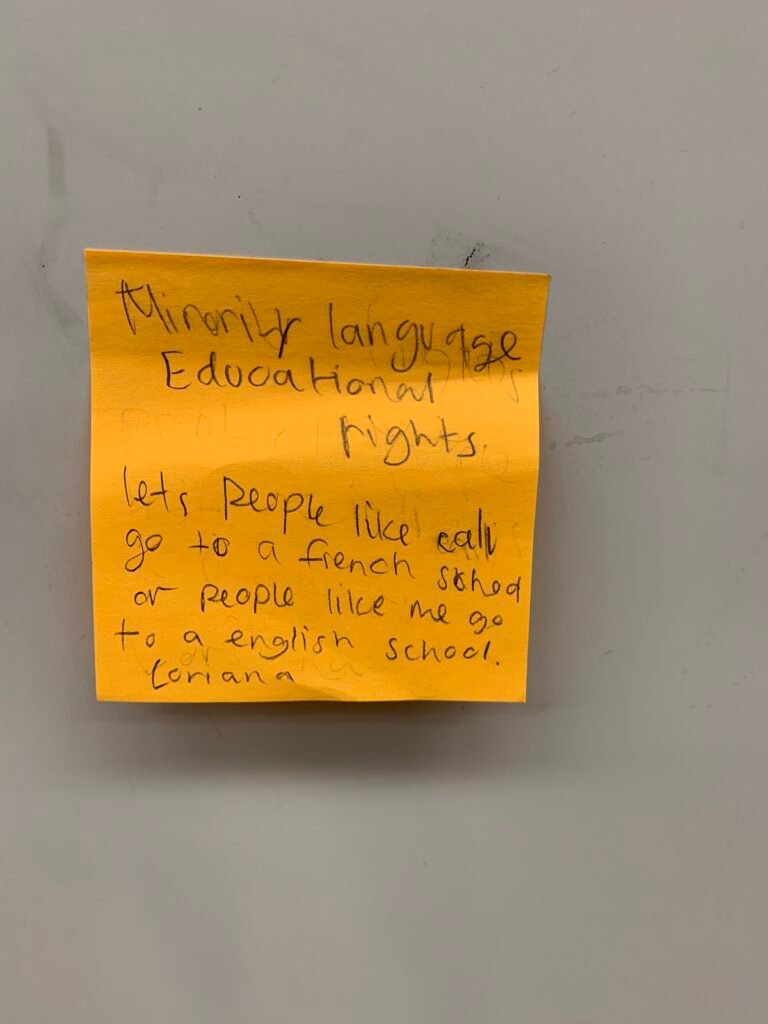 Minority language
Educational
rights.
lets people like
go to a french school
or people like me go
to a english school.
Loriana